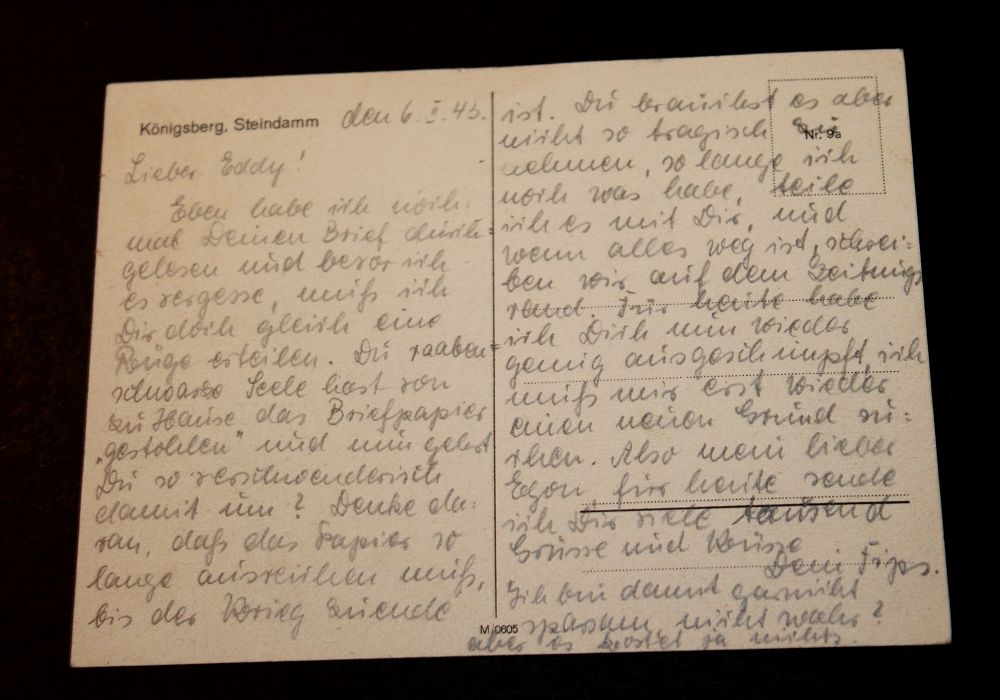 Königsberg, Steindamm den 6. I. 45.
Lieber Eddy!
Eben habe ich noch-
mal Deinen Brief durch=
gelesen und bevor ich
es vergesse, muß ich
Dir doch gleich eine
Rüge erteilen. Du raaben=
schwarze Seele hast von
zu Hause das Briefpapier
"gestohlen" und nun gehst
Du so verschwenderisch
damit um? Denke da-
ran, daß das Papier so
lange ausreichen muß,
bis der Krieg zuende
ist. Du brauchst es aber
nicht so tragisch zu
Nr. 9a
nehmen, so lange ich
noch was habe, teile
ich es mit Dir, und
wenn alles weg ist, schrei=
ben wir auf dem Zeitungs
rand. Für heute habe
ich Dich nun wieder
genug ausgeschimpft, ich
muß mir erst wieder
einen neuen Grund su=
chen. Also mein lieber
Egon, für heute sende
ich Dir viele tausend
Grüsse und Küsse
Dein Fips.
Ich bin damit garnicht
sparsam, nicht wahr?
aber es kostet ja nichts.
M/0605